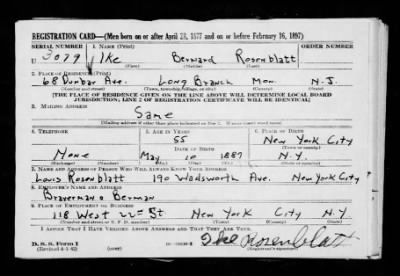 REGISTRATION CARD—(Men born on or after April 28, 1877 and on or before February 16, 1897)
SERIAL NUMBER 1. NAME (Print)
U 3079 Ike Bernard Rosenblatt
(First) (Middle) (Last)
2. PLACE OF RESIDENCE (Print)
68 Dunbar Ave. Long Branch Mon. N.J.
(Number and street) (Town, township, village, or city) (County) (State)
[THE PLACE OF RESIDENCE GIVEN ON THE LINE ABOVE WILL DETERMINE LOCAL BOARD
JURISDICTION; LINE 2 OF REGISTRATION CERTIFICATE WILL BE IDENTICAL]
3. MAILING ADDRESS
Same
(Mailing address if other than place indicated on line 2. If same insert word same)
4. TELEPHONE 5. AGE IN YEARS 6. PLACE OF BIRTH
55 New York City
DATE OF BIRTH (Town or county)
None May 10 1887 N.Y.
(Exchange) (Number) (Mo.) (Day) (Yr.) (State or country)
7. NAME AND ADDRESS OF PERSON WHO WILL ALWAYS KNOW YOUR ADDRESS
Louis Rosenblatt 190 Wadsworth Ave. New York City
8. EMPLOYER'S NAME AND ADDRESS
Braverman & Berman
9. PLACE OF EMPLOYMENT OR BUSINESS
118 West 22 St New York City N.Y.
(Number and street or R. F. D. number) (Town) (County) (State)
I AFFIRM THAT I HAVE VERIFIED ABOVE ANSWERS AND THAT THEY ARE TRUE.
D. S. S. Form 1
(Revised 4-1-42) (over) Ike Rosenblatt